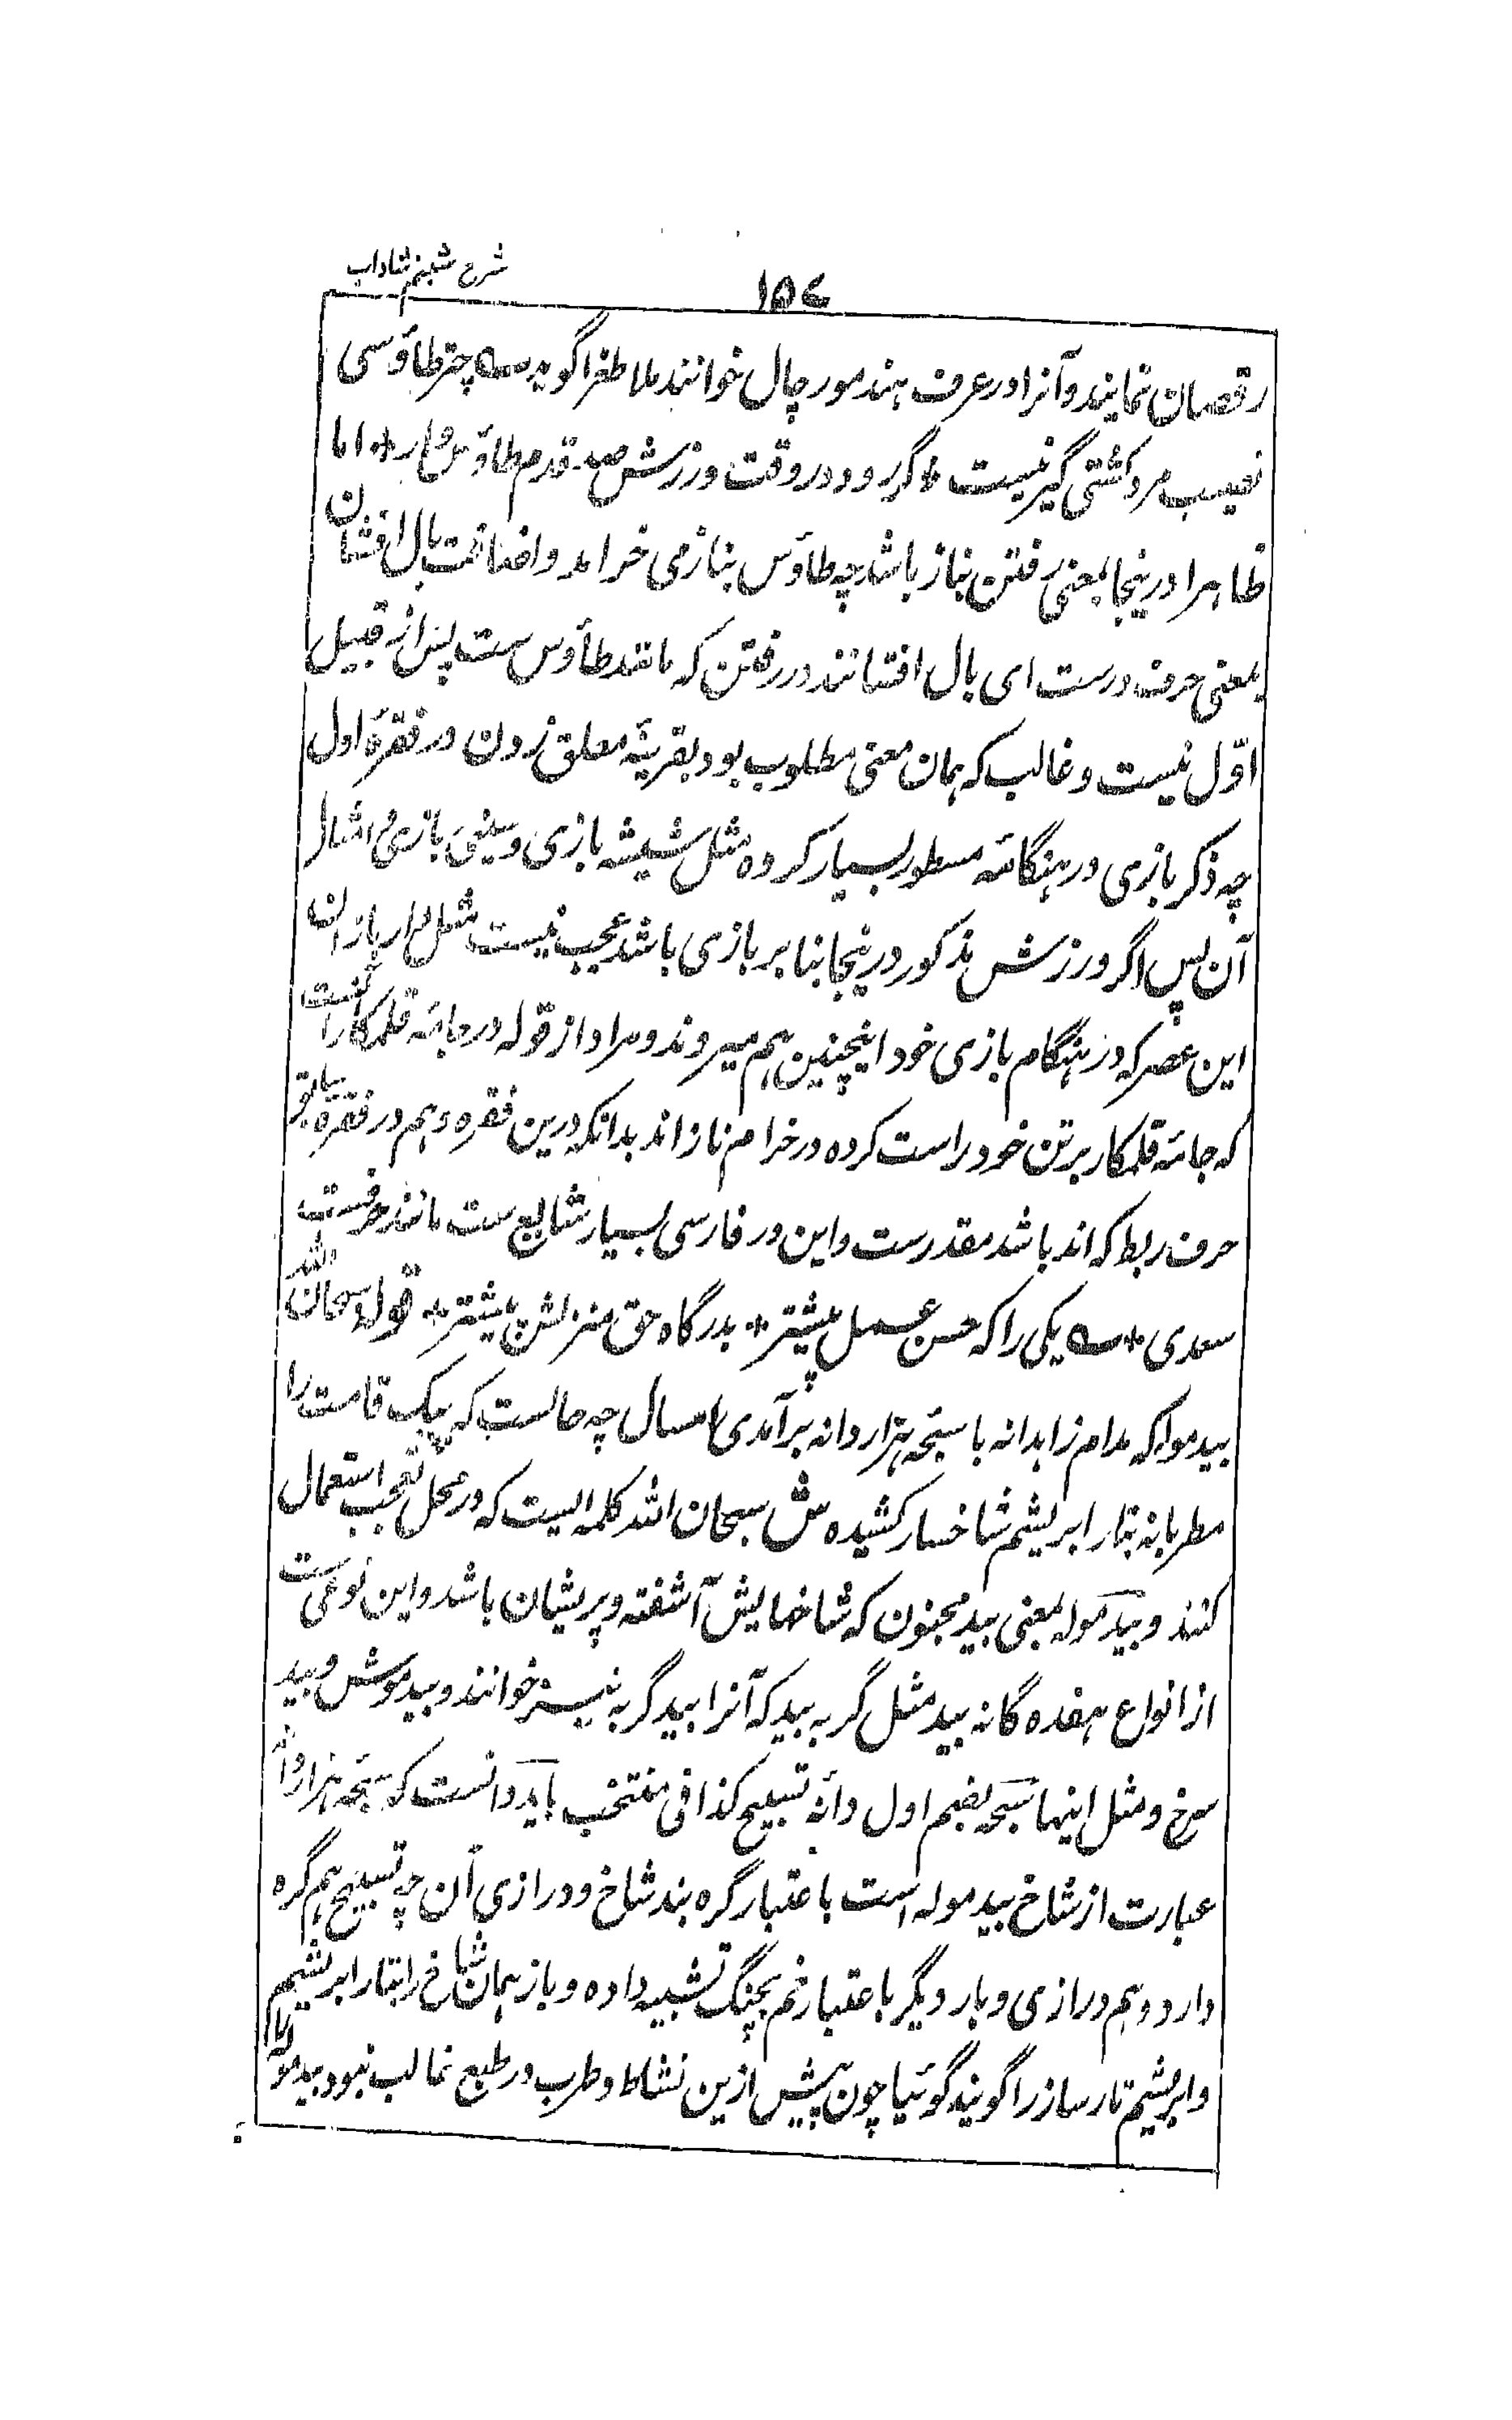 شرح شبنم شاداب
۱۵۴
رقصان نمایند و آنرا در عرف هند مور چال خوانند ملا طغرا گوید ؎ چتر طاؤسی
نصیب مرد کشتی گیر نیست * گر رود در وقت ورزش صد قدم طاؤس وار * اما
ظاهرا درینجا بمعنی رفتن بناز باشد چه طاؤس بناز می خرامد و اضافت بال افشان
بمعنی حرف درست ای بال افشانند در رفتن که مانند طاؤس ست پس از قبیل
اوّل نیست و غالب که همان معنی مطلوب بود بقرینۀ معلق زدن در فقرۀ اول
چه ذکر بازی در هنگامۀ مسطور بسیار کرده مثل شیشه بازی و سینی بازی و امثال
آن پس اگر ورزش مذکور درینجا بنا بر بازی باشد عجب نیست مثل دار بازان
این عصر که در هنگام بازی خود اینچنین هم میروند و مراد از قوله در جامۀ قلمکار آنست
که جامۀ قلمکار بر تن خود راست کرده در خرام ناز اند بدانکه درین فقره و هم در فقرۀ سابق
حرف ربط که اند باشد مقدرست و این در فارسی بسیار شایع ست مانند حرف ست
سعدی * ؎ یکی را که حسن عمل بیشتر * بدرگاه حق منزلش پیشتر * قوله سبحان الله
بید موله که مدام زاهدانه با سبحه هزار دانه برآمدی امسال چه حالست که چنگ قامت را
مطربانه بتار ابریشم شاخسار کشیده ش سبحان الله کلمه ایست که در محل تعجب استعمال
کنند و بید موله بمعنی بید مجنون که شاخهایش آشفته و پریشان باشد و این نوعی ست
از انواع هفده گانه بید مثل گربه بید که آنرا بید گربه نیز خوانند و بید موش و بید
سرخ و مثل اینها سبحه بضم اول دانۀ تسبیح کذا فی منتخب باید دانست که سبحه هزار دانه
عبارت از شاخ بید موله است باعتبار گره بند شاخ و درازی آن چه تسبیح هم گره
دارد و هم درازی و بار دیگر باعتبار خم بچنگ تشبیه داده و باز همان شاخ را بتار ابریشم
و ابریشم تار ساز را گویند گوئیا چون پیش ازین نشاط و طرب در طبع غالب نبود بید موله